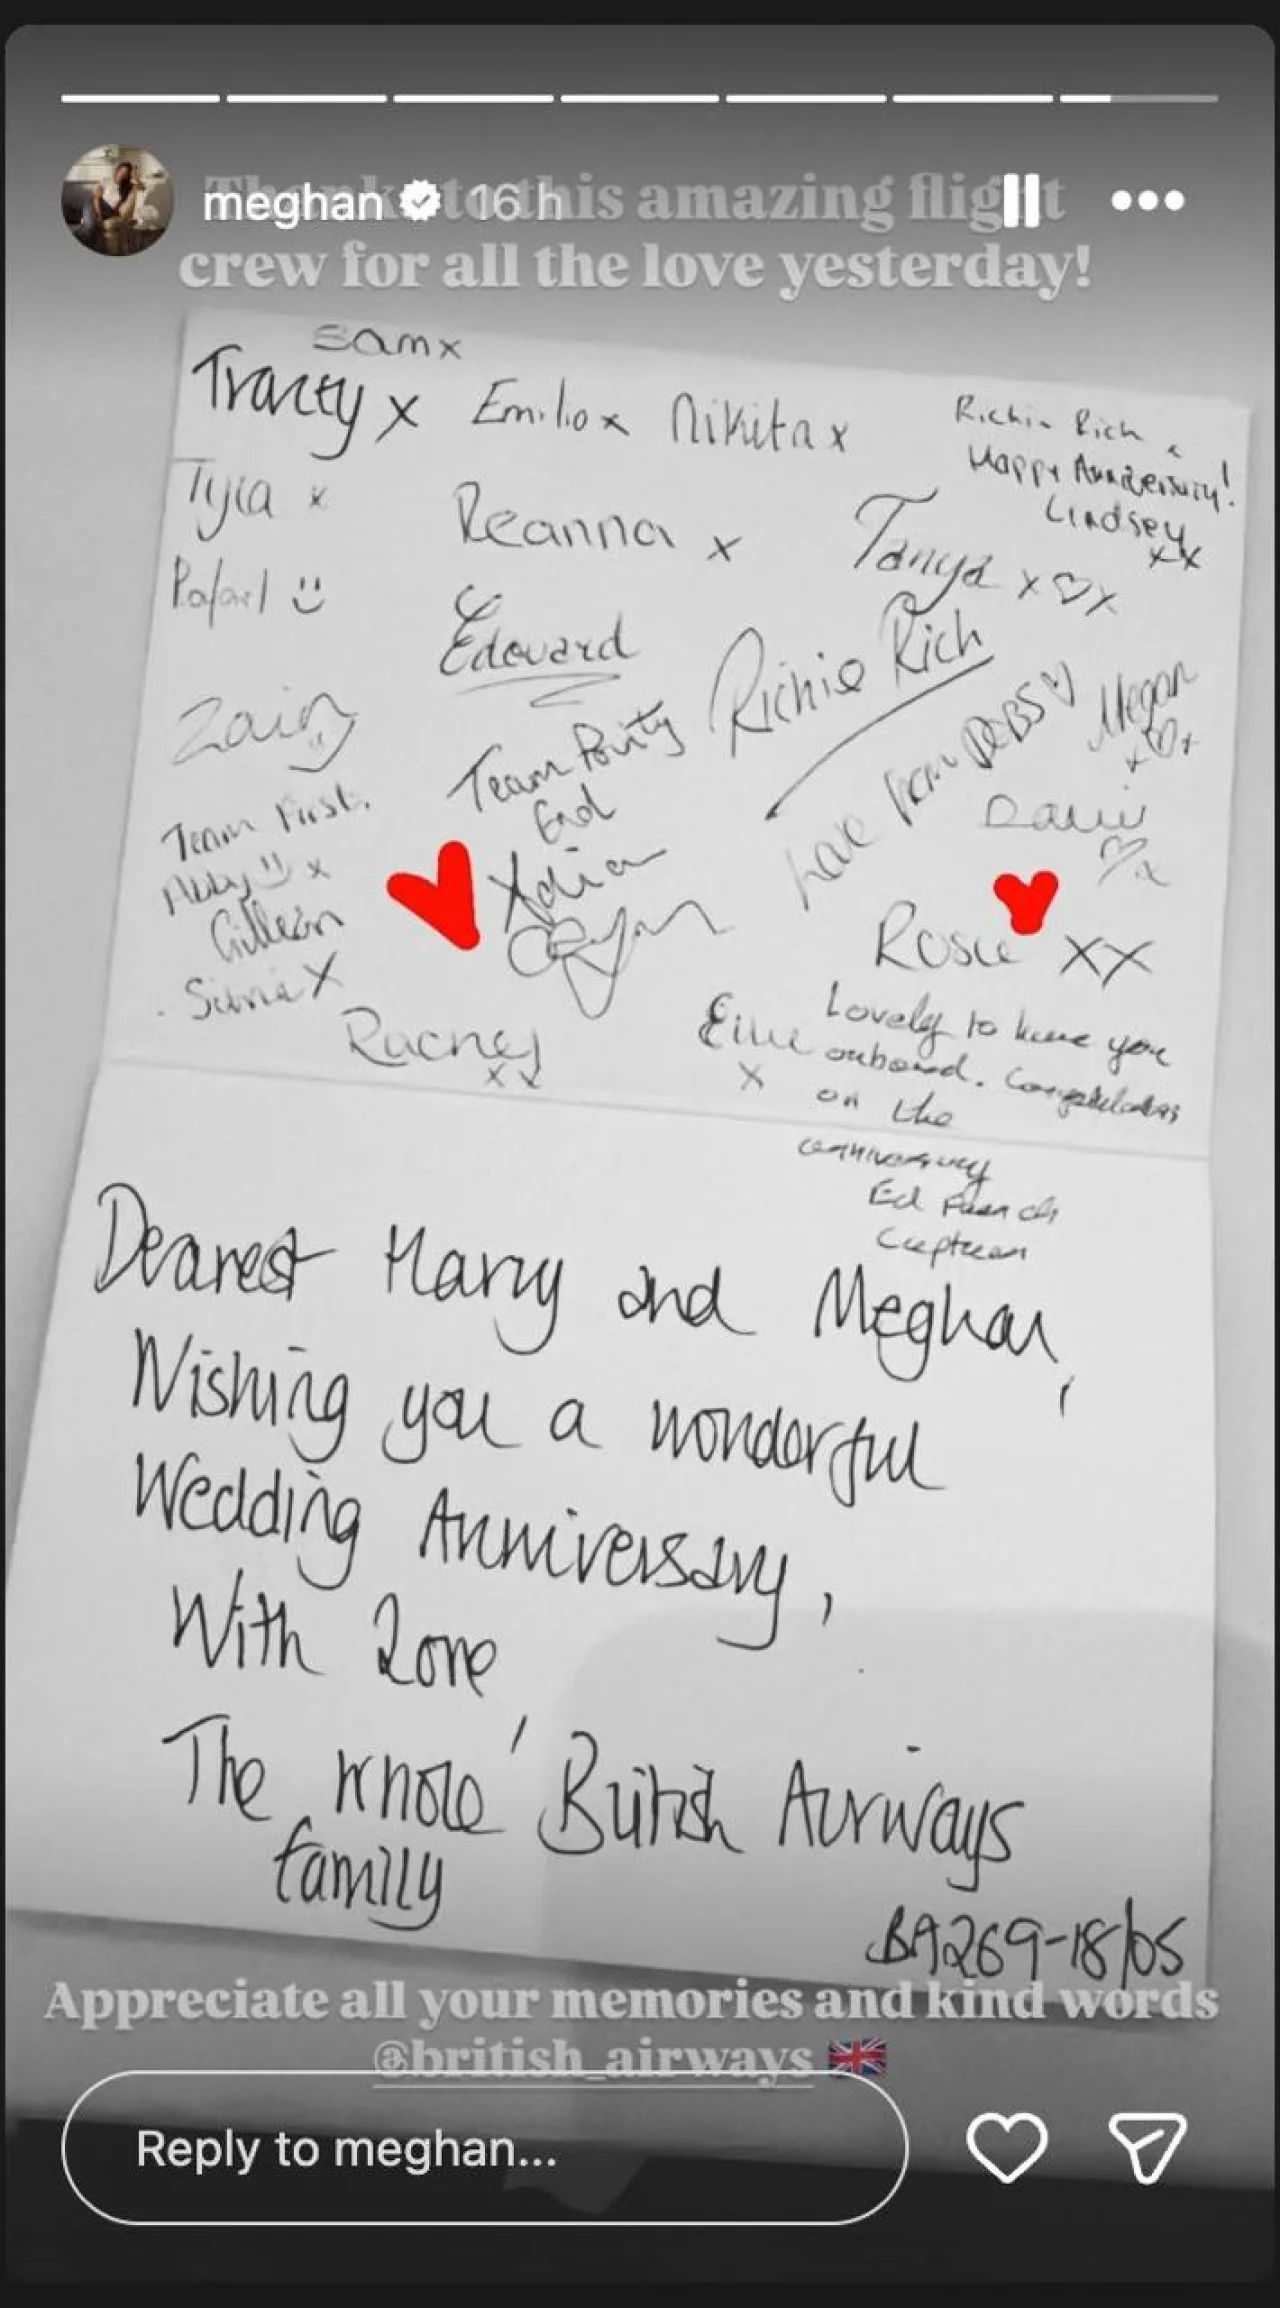 meghan 16 h
Thanks to this amazing flight
crew for all the love yesterday!
Samx
Tracey x Emilio x Nikita x
Richie Rich x
Happy Anniversary!
Lindsey
xx
Tyla x
Reanna x
Tanya x♡x
Rafael
Edouard
Richie Rich
Zain
Team Purity
End
Love from DEBS♡
Megan
x♡x
Team First.
Abby x
Gillean
Silvia X
Adrian
Ryan
Rosie XX
x
Lovely to have you
onboard. Congratulations
on the
anniversary
Ed French
Captain
xx
Dearest Harry and Meghan,
Wishing you a wonderful
Wedding Anniversary,
With Love,
The whole British Airways
family
BA269-18/05
Appreciate all your memories and kind words
@british_airways 🇬🇧
Reply to meghan...